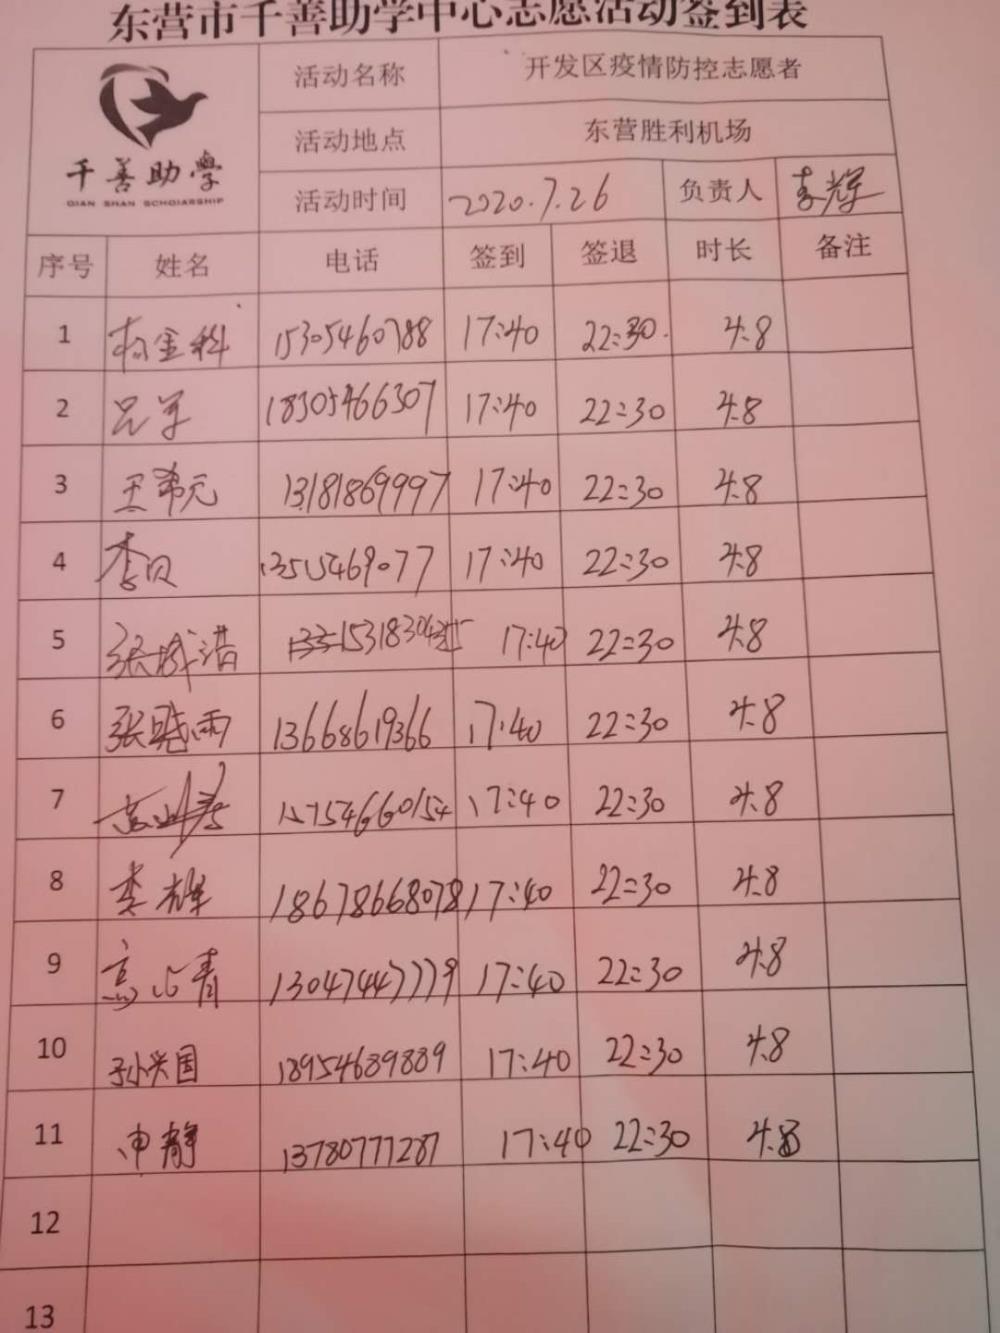 东营市千善助学中心志愿活动签到表
千善助學
QIAN SHAN SCHOIARSHIP
活动名称 开发区疫情防控志愿者
活动地点 东营胜利机场
活动时间 2020.7.26 负责人 李辉
序号 姓名 电话 签到 签退 时长 备注
1 金科 15305460788 17:40 22:30 4.8
2 18305466307 17:40 22:30 4.8
3 王希元 13181869997 17:40 22:30 4.8
4 李 13515469077 17:40 22:30 4.8
5 张 17:40 22:30 4.8
6 张晓雨 13668619366 17:40 22:30 4.8
7 15754660154 17:40 22:30 4.8
8 李 18678668078 17:40 22:30 4.8
9 高心青 13047447779 17:40 22:30 4.8
10 孙兴国 18954689889 17:40 22:30 4.8
11 申静 13780777287 17:40 22:30 4.8
12
13